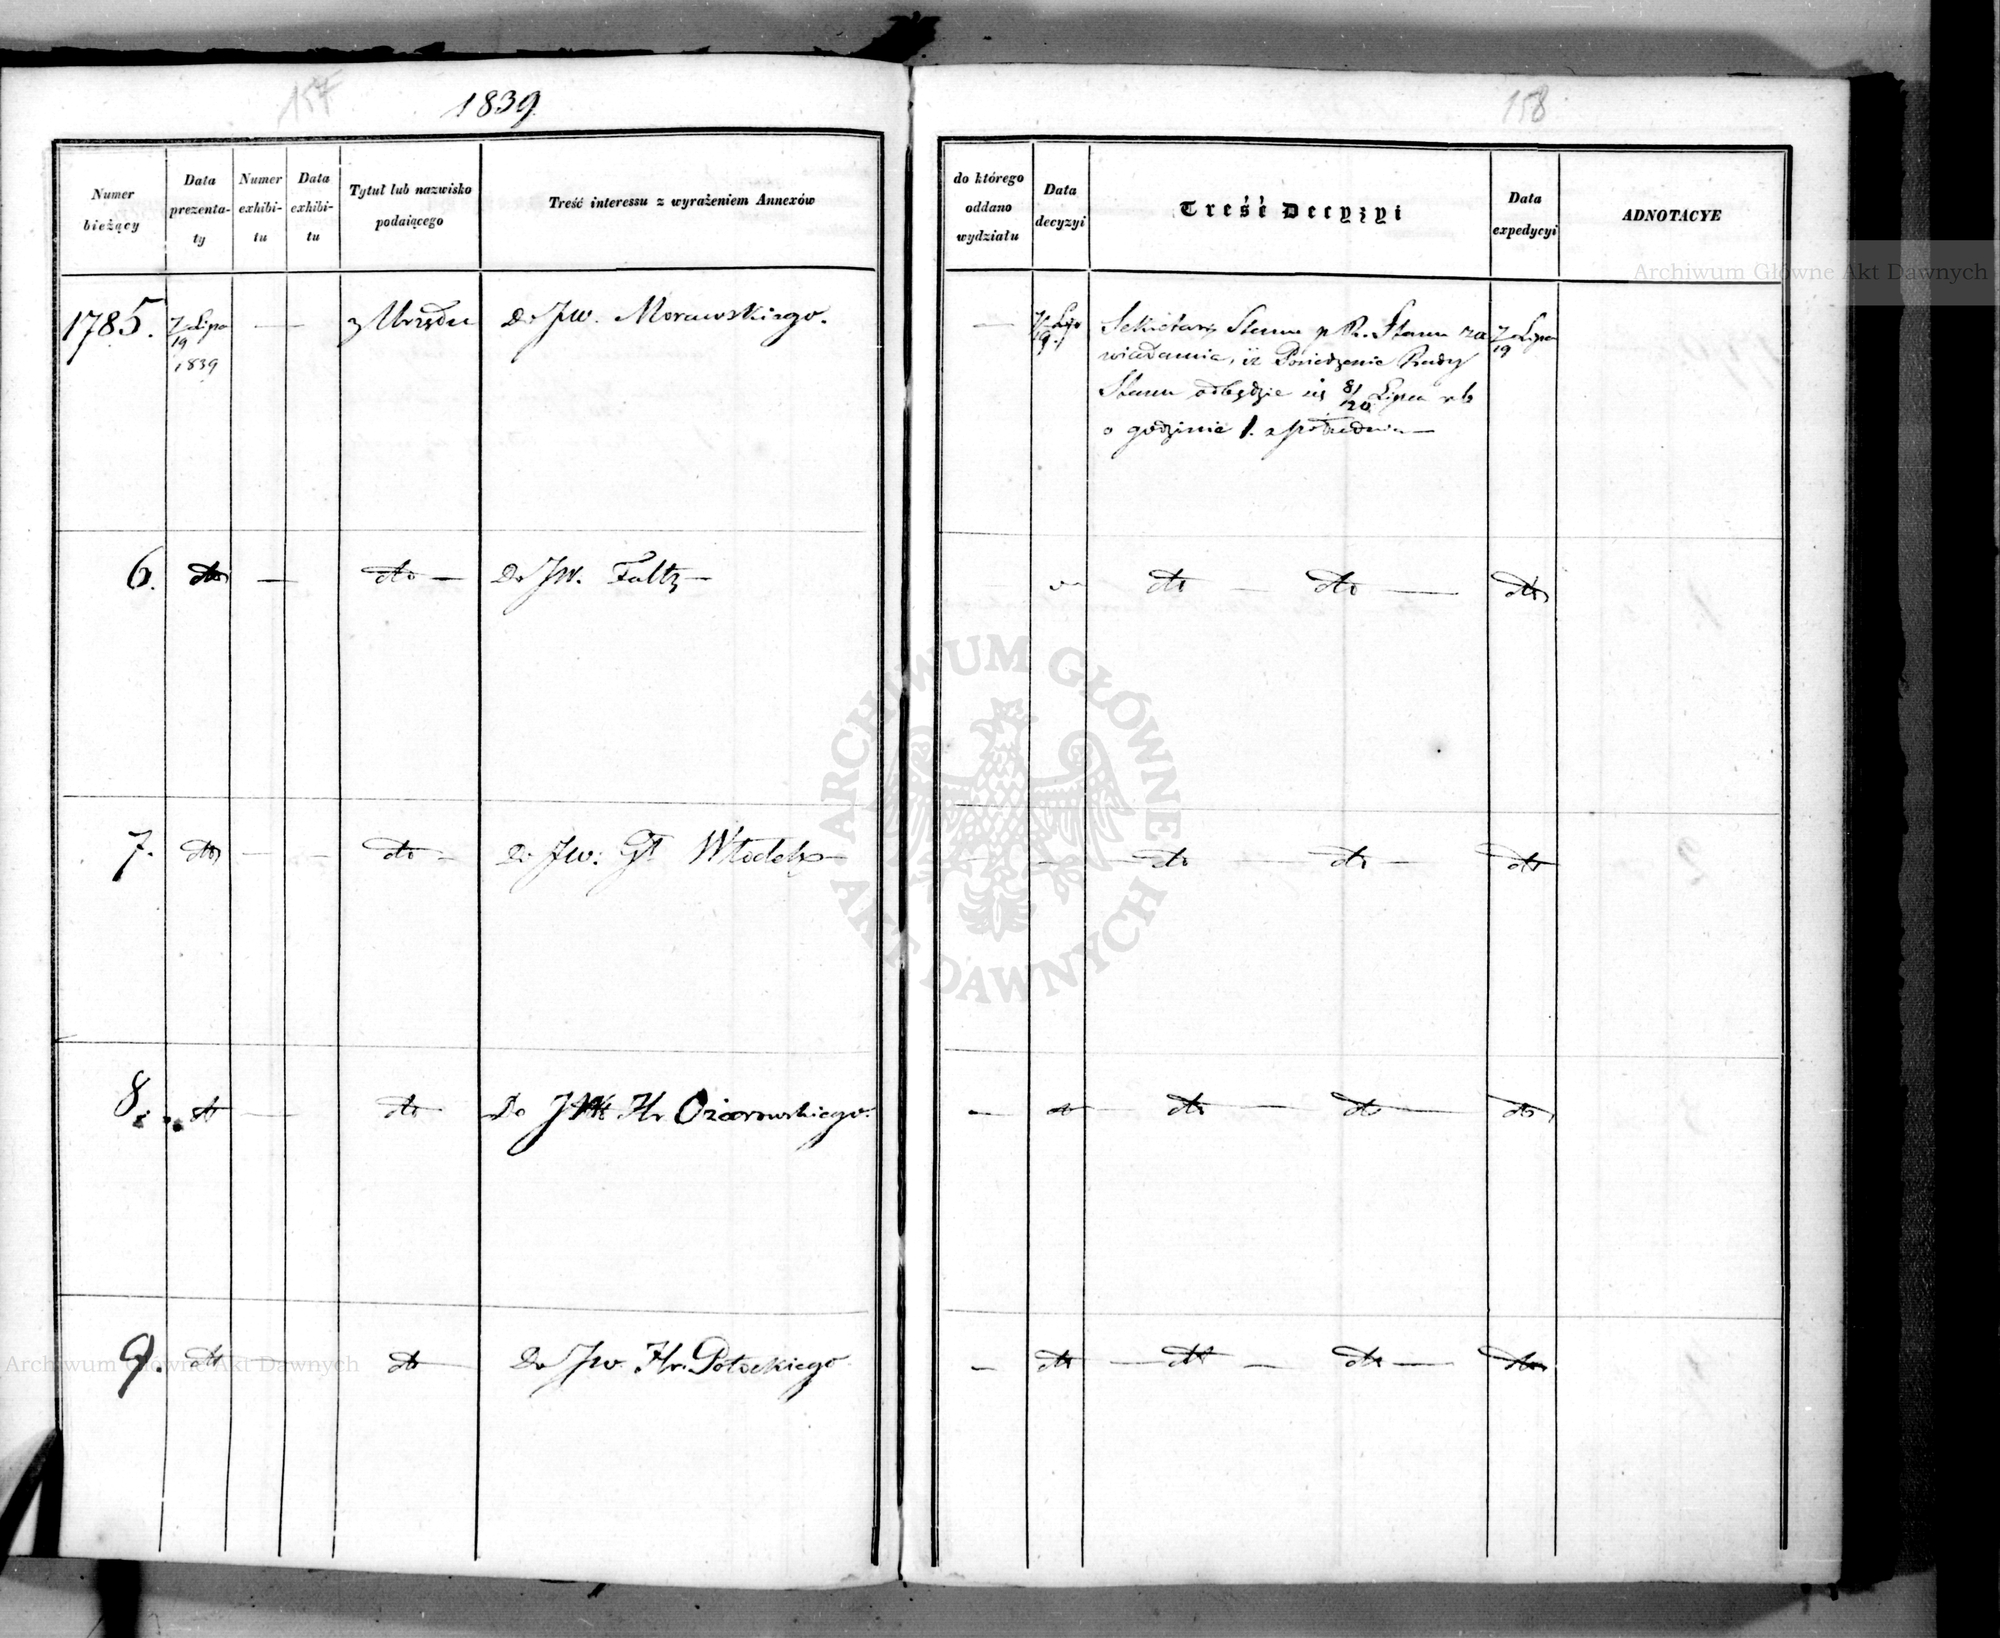 157
1839
Numer
bieżący
Data
prezenta-
ty
Numer
exhibi-
tu
Data
exhibi-
tu
Tytuł lub nazwisko
podaiącego
Treść interessu z wyrażeniem Annexów
1785.
7/19 Lipa
1839
—
z Urzędu
Do Jw. Morawskiego.
6.
dto
—
dto —
Do JW. Faltz —
7.
dto
— —
dto —
Do Jw: Gł Włodek —
8.
dto
—
dto
Do JW Hr Ożarowskiego.
9.
dto
—
dto
Do Jw. Hr. Potockiego
158
do którego
oddano
wydziału
Data
decyzyi
Treść Decyzyi
Data
expedycyi
ADNOTACYE
—
7/19 Lipa
Sekretarz Stanu p R. Stanu za
wiadamia, iż Posiedzenie Rady
Stanu odbędzie się 8/20 Lipca rb
o godzinie 1. z południa —
7/19 Lipca
dto — dto —
dto
— — dto — dto —
dto
— dto — dto — dto —
dto
— dto — dto — dto —
dto
Archiwum Główne Akt Dawnych
ARCHIWUM GŁÓWNE
AKT DAWNYCH
Archiwum Główne Akt Dawnych